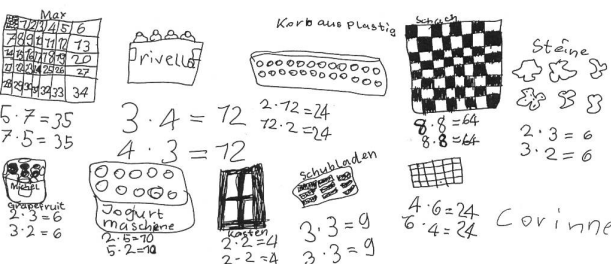 Max
1 2 3 4 5 6
7 8 9 10 11 12 13
14 15 16 17 18 19 20
21 22 23 24 25 26 27
28 29 30 31 32 33 34
5·7=35
7·5=35
rivella
3·4=12
4·3=12
Korb aus plastig
2·12=24
12·2=24
Schach
8·8=64
8·8=64
Steine
2·3=6
3·2=6
Michel
grapefruit
2·3=6
3·2=6
Jogurt
maschine
2·5=10
5·2=10
Kasten
2·2=4
2·2=4
Schubladen
3·3=9
3·3=9
4·6=24
6·4=24
Corinne